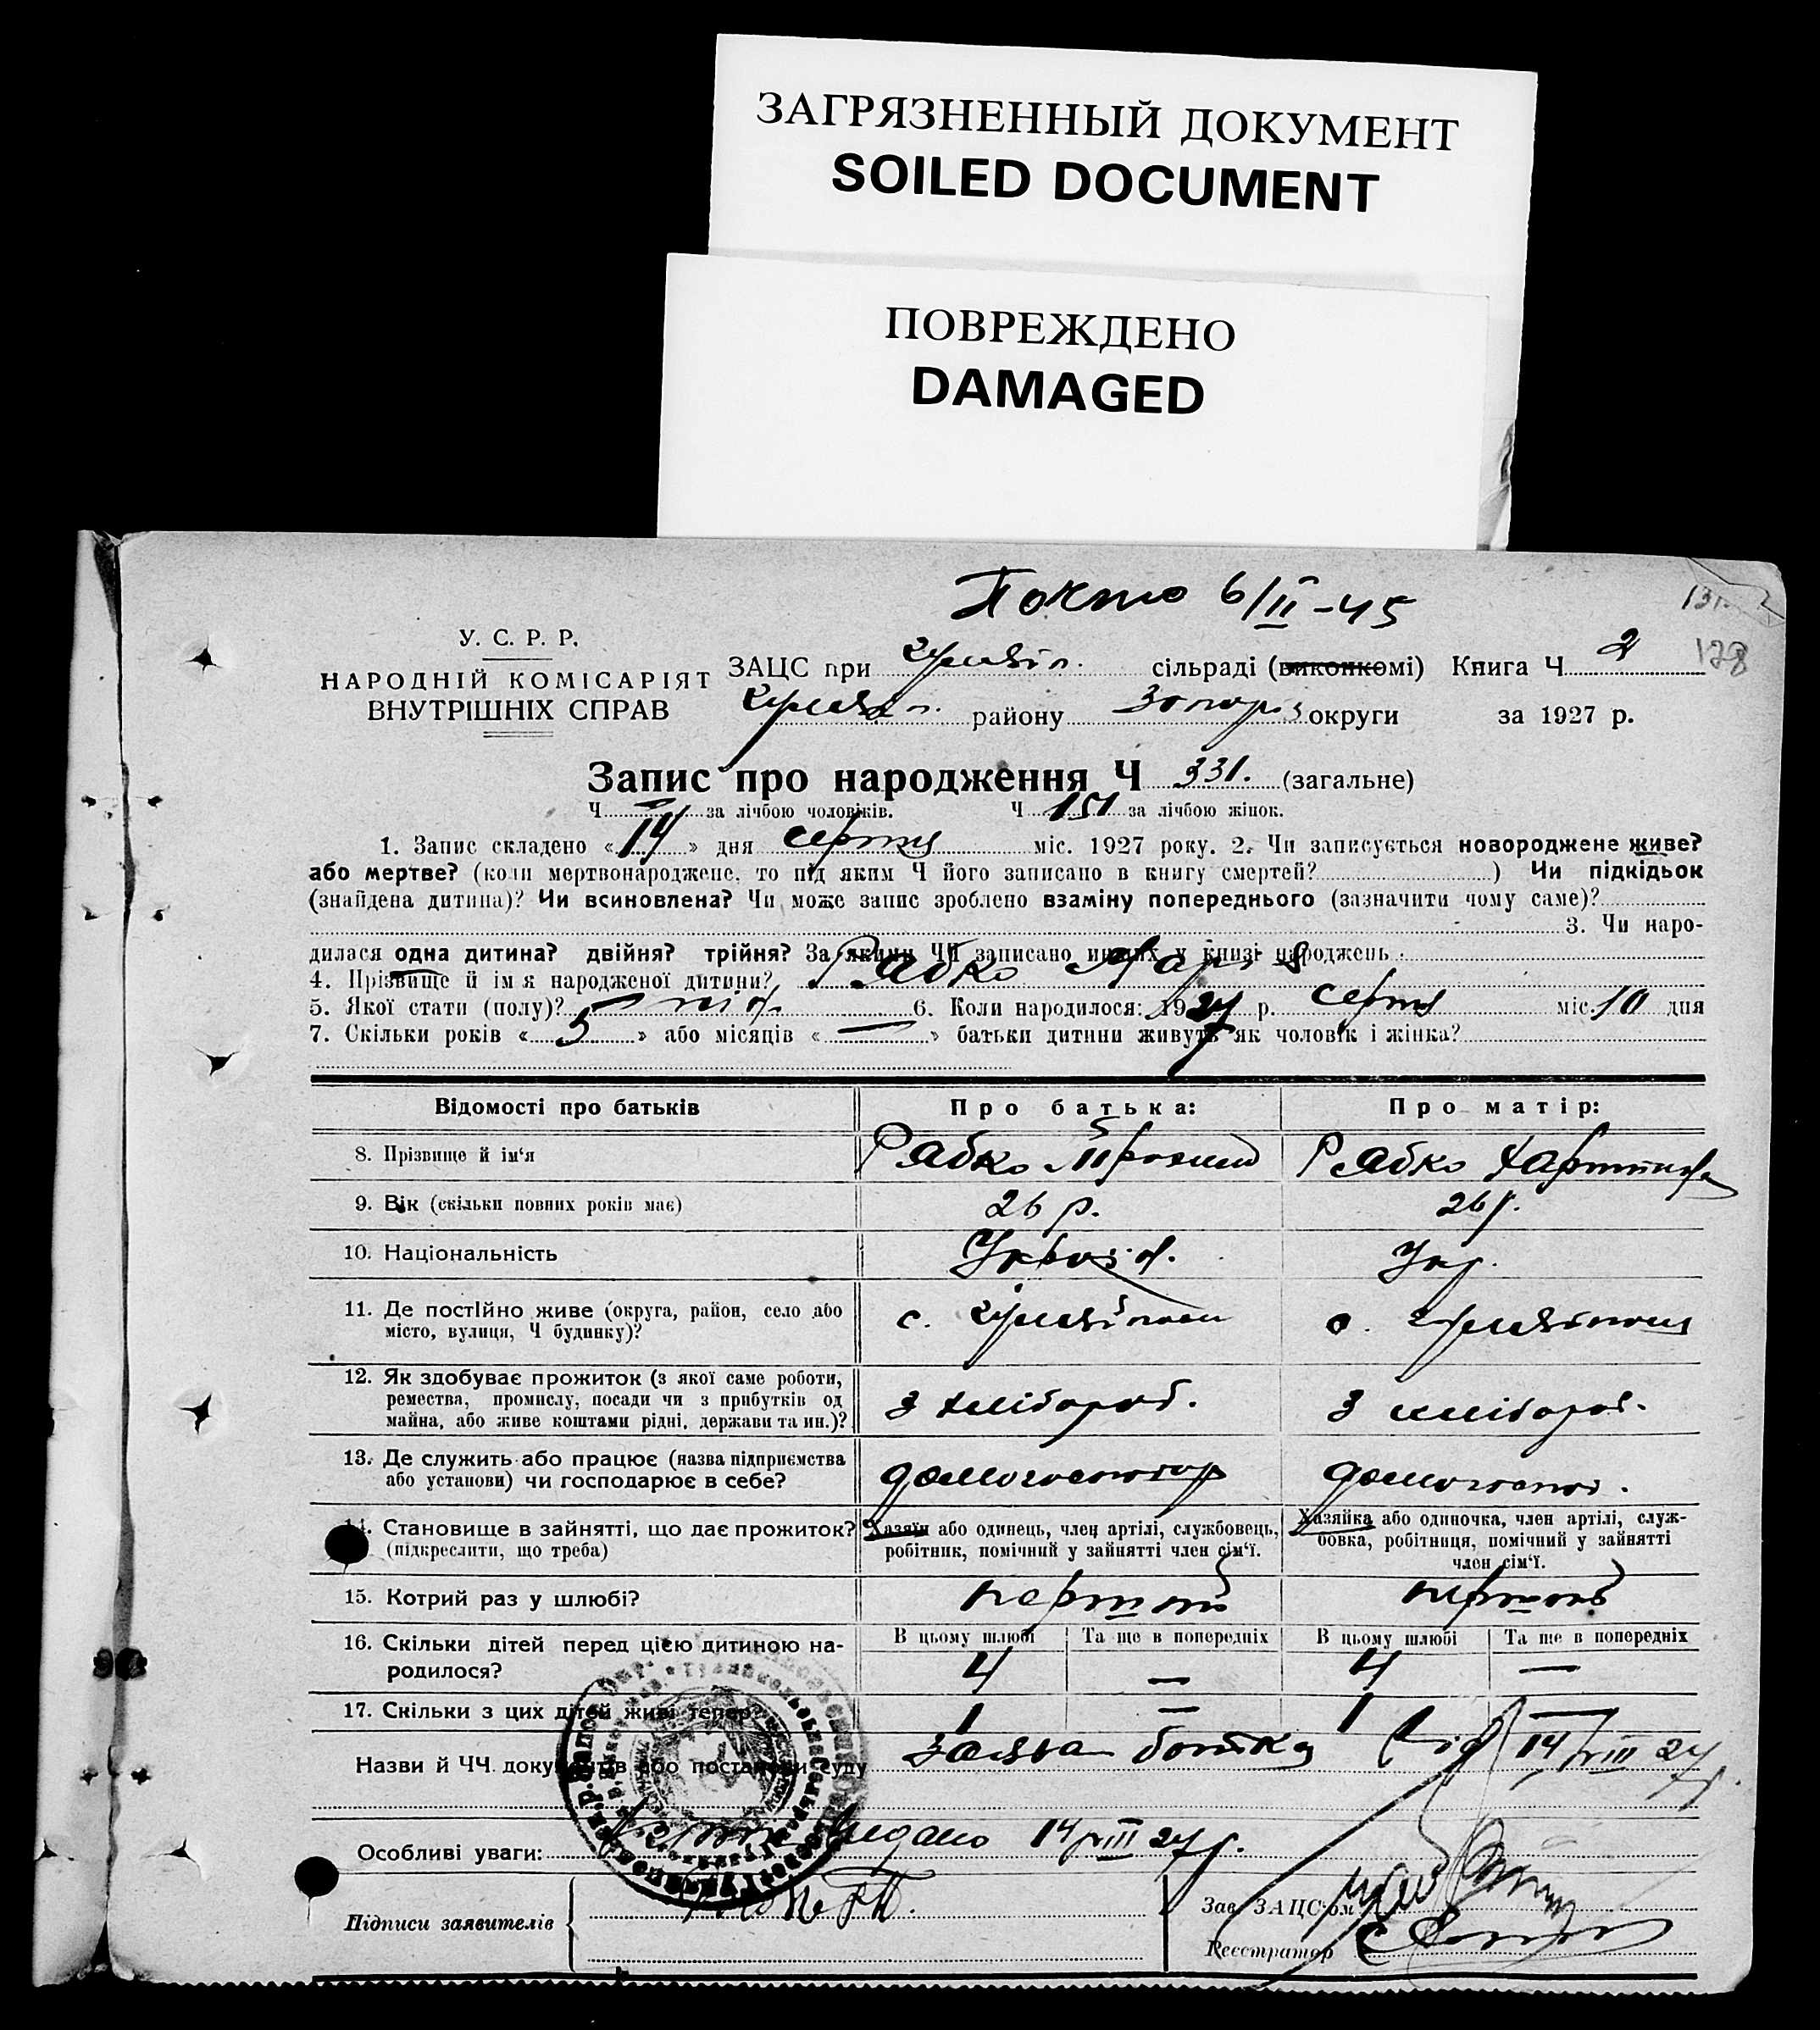 ЗАГРЯЗНЕННЫЙ ДОКУМЕНТ
SOILED DOCUMENT
ПОВРЕЖДЕНО
DAMAGED
6/II-45
У. С. Р. Р.
НАРОДНІЙ КОМІСАРІЯТ
ВНУТРІШНІХ СПРАВ
ЗАЦС при сільраді (виконкомі) Книга Ч 2
128
району округи за 1927 р.
Запис про народження Ч 331. (загальне)
Ч — за лічбою чоловіків. Ч 151 за лічбою жінок.
1. Запис складено « 14 » дня серпня міс. 1927 року. 2. Чи записується новороджене живе?
або мертве? (коли мертвонароджене, то під яким Ч його записано в книгу смертей? ) Чи підкідьок
(знайдена дитина)? Чи всиновлена? Чи може запис зроблено взаміну попереднього (зазначити чому саме)?
3. Чи наро-
дилася одна дитина? двійня? трійня? За якими ЧЧ записано инших у книзі народжень
4. Прізвище й ім я народженої дитини? Рябко Марія
5. Якої стати (полу)? 6. Коли народилося: 1927 р. серпня міс. 10 дня
7. Скільки років « 5 » або місяців « — » батьки дитини живуть як чоловік і жінка?
Відомості про батьків
Про батька:
Про матір:
8. Прізвище й ім‘я Рябко Рябко
9. Вік (скільки повних років має) 26 р. 26 р.
10. Національність Укр.
11. Де постійно живе (округа, район, село або
місто, вулиця, Ч будинку)? с. с.
12. Як здобуває прожиток (з якої саме роботи,
ремества, промислу, посади чи з прибутків од
майна, або живе коштами рідні, держави та ин.)? з хлібороб. з хлібороб.
13. Де служить або працює (назва підприємства
або установи) чи господарює в себе? домогосподар домогоспод.
14. Становище в зайнятті, що дає прожиток?
(підкреслити, що треба)
Хазяїн або одинець, член артілі, службовець,
робітник, помічний у зайнятті член сім‘ї.
Хазяйка або одиночка, член артілі, служ-
бовка, робітниця, помічний у зайнятті
член сім‘ї.
15. Котрий раз у шлюбі?
16. Скільки дітей перед цією дитиною на-
родилося?
В цьому шлюбі Та ще в попередніх В цьому шлюбі Та ще в попередніх
4 — 4 —
17. Скільки з цих дітей живі тепер? 1 — 1 —
Назви й ЧЧ документів або постанови суду заява батька від 14/VIII 27 р.
Особливі уваги: видано 14/VIII 27 р.
Підписи заявителів
Зав. ЗАЦС‘ом
Реєстратор